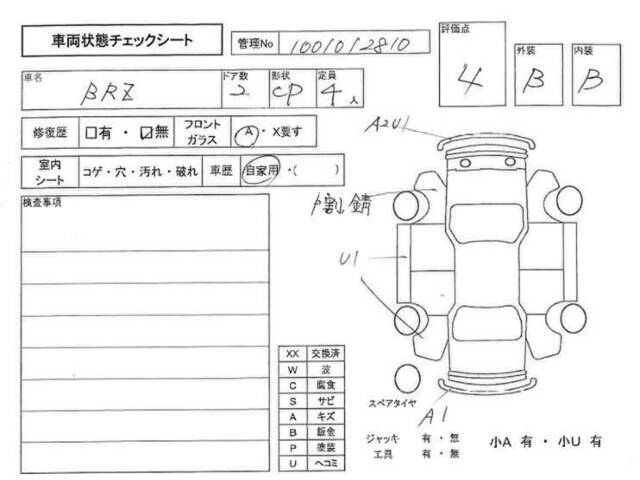 車両状態チェックシート
管理No 1001012810
評価点 4
外装 B
内装 B
車名 BRZ
ドア数 2
形状 CP
定員 4人
修復歴 □有・☑無
フロントガラス A・X要す
室内シート コゲ・穴・汚れ・破れ
車歴 自家用・( )
検査事項
A2U1
割錆
U1
A1
XX 交換済
W 波
C 腐食
S サビ
A キズ
B 鈑金
P 塗装
U ヘコミ
スペアタイヤ
ジャッキ 有・無
工具 有・無
小A 有・小U 有